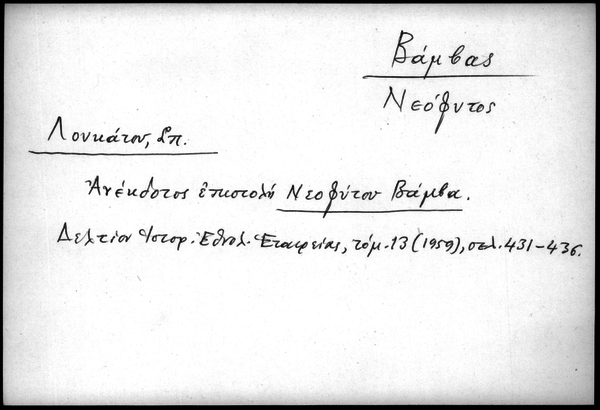 Βάμβας
Νεόφυτος
Λουκάτου, Σπ.
Ἀνέκδοτος ἐπιστολή Νεοφύτου Βάμβα.
Δελτίον Ἱστορ. Ἐθνολ. Ἑταιρείας, τόμ. 13 (1959), σελ. 431-436.